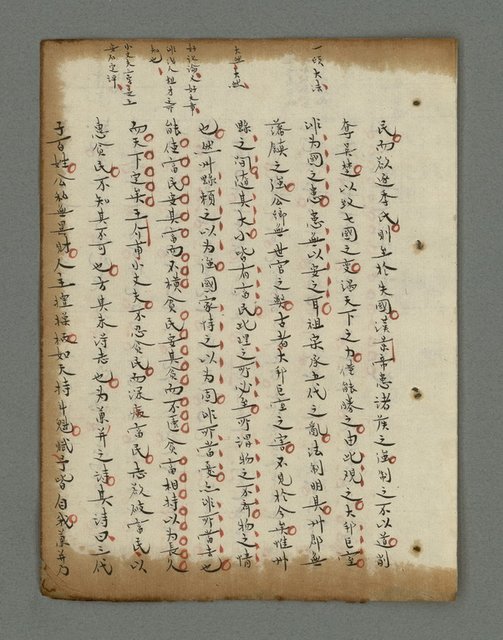 大然大然
小丈夫三字是上
安石定評
民而欲逐季氏則至於失國漢景帝患諸侯之強制之不以道削
奪吳楚以致七國之變竭天下之力僅能勝之由此觀之大邦巨室
非為國之患患無以安之耳祖宗承五代之亂法制明具州郡無
藩鎮之強公卿無世官之弊古者大邦巨室之害不見於今矣惟州
縣之間隨其大小皆有富民此理之所必至所謂物之不齊物之情
也然州縣賴之以為強國家恃之以為固非所當憂亦非所當去也
能使富民安其富而不橫貧民安其貧而不匱貧富相恃以為長久
而天下定矣王介甫小丈夫不忍貧民而深疾富民志欲破富民以
惠貧民不知其不可也方其未得志也為兼并之詩其詩曰三代
子百姓公私無異財人主擅操柄如天持斗魁賦予皆自我兼并乃